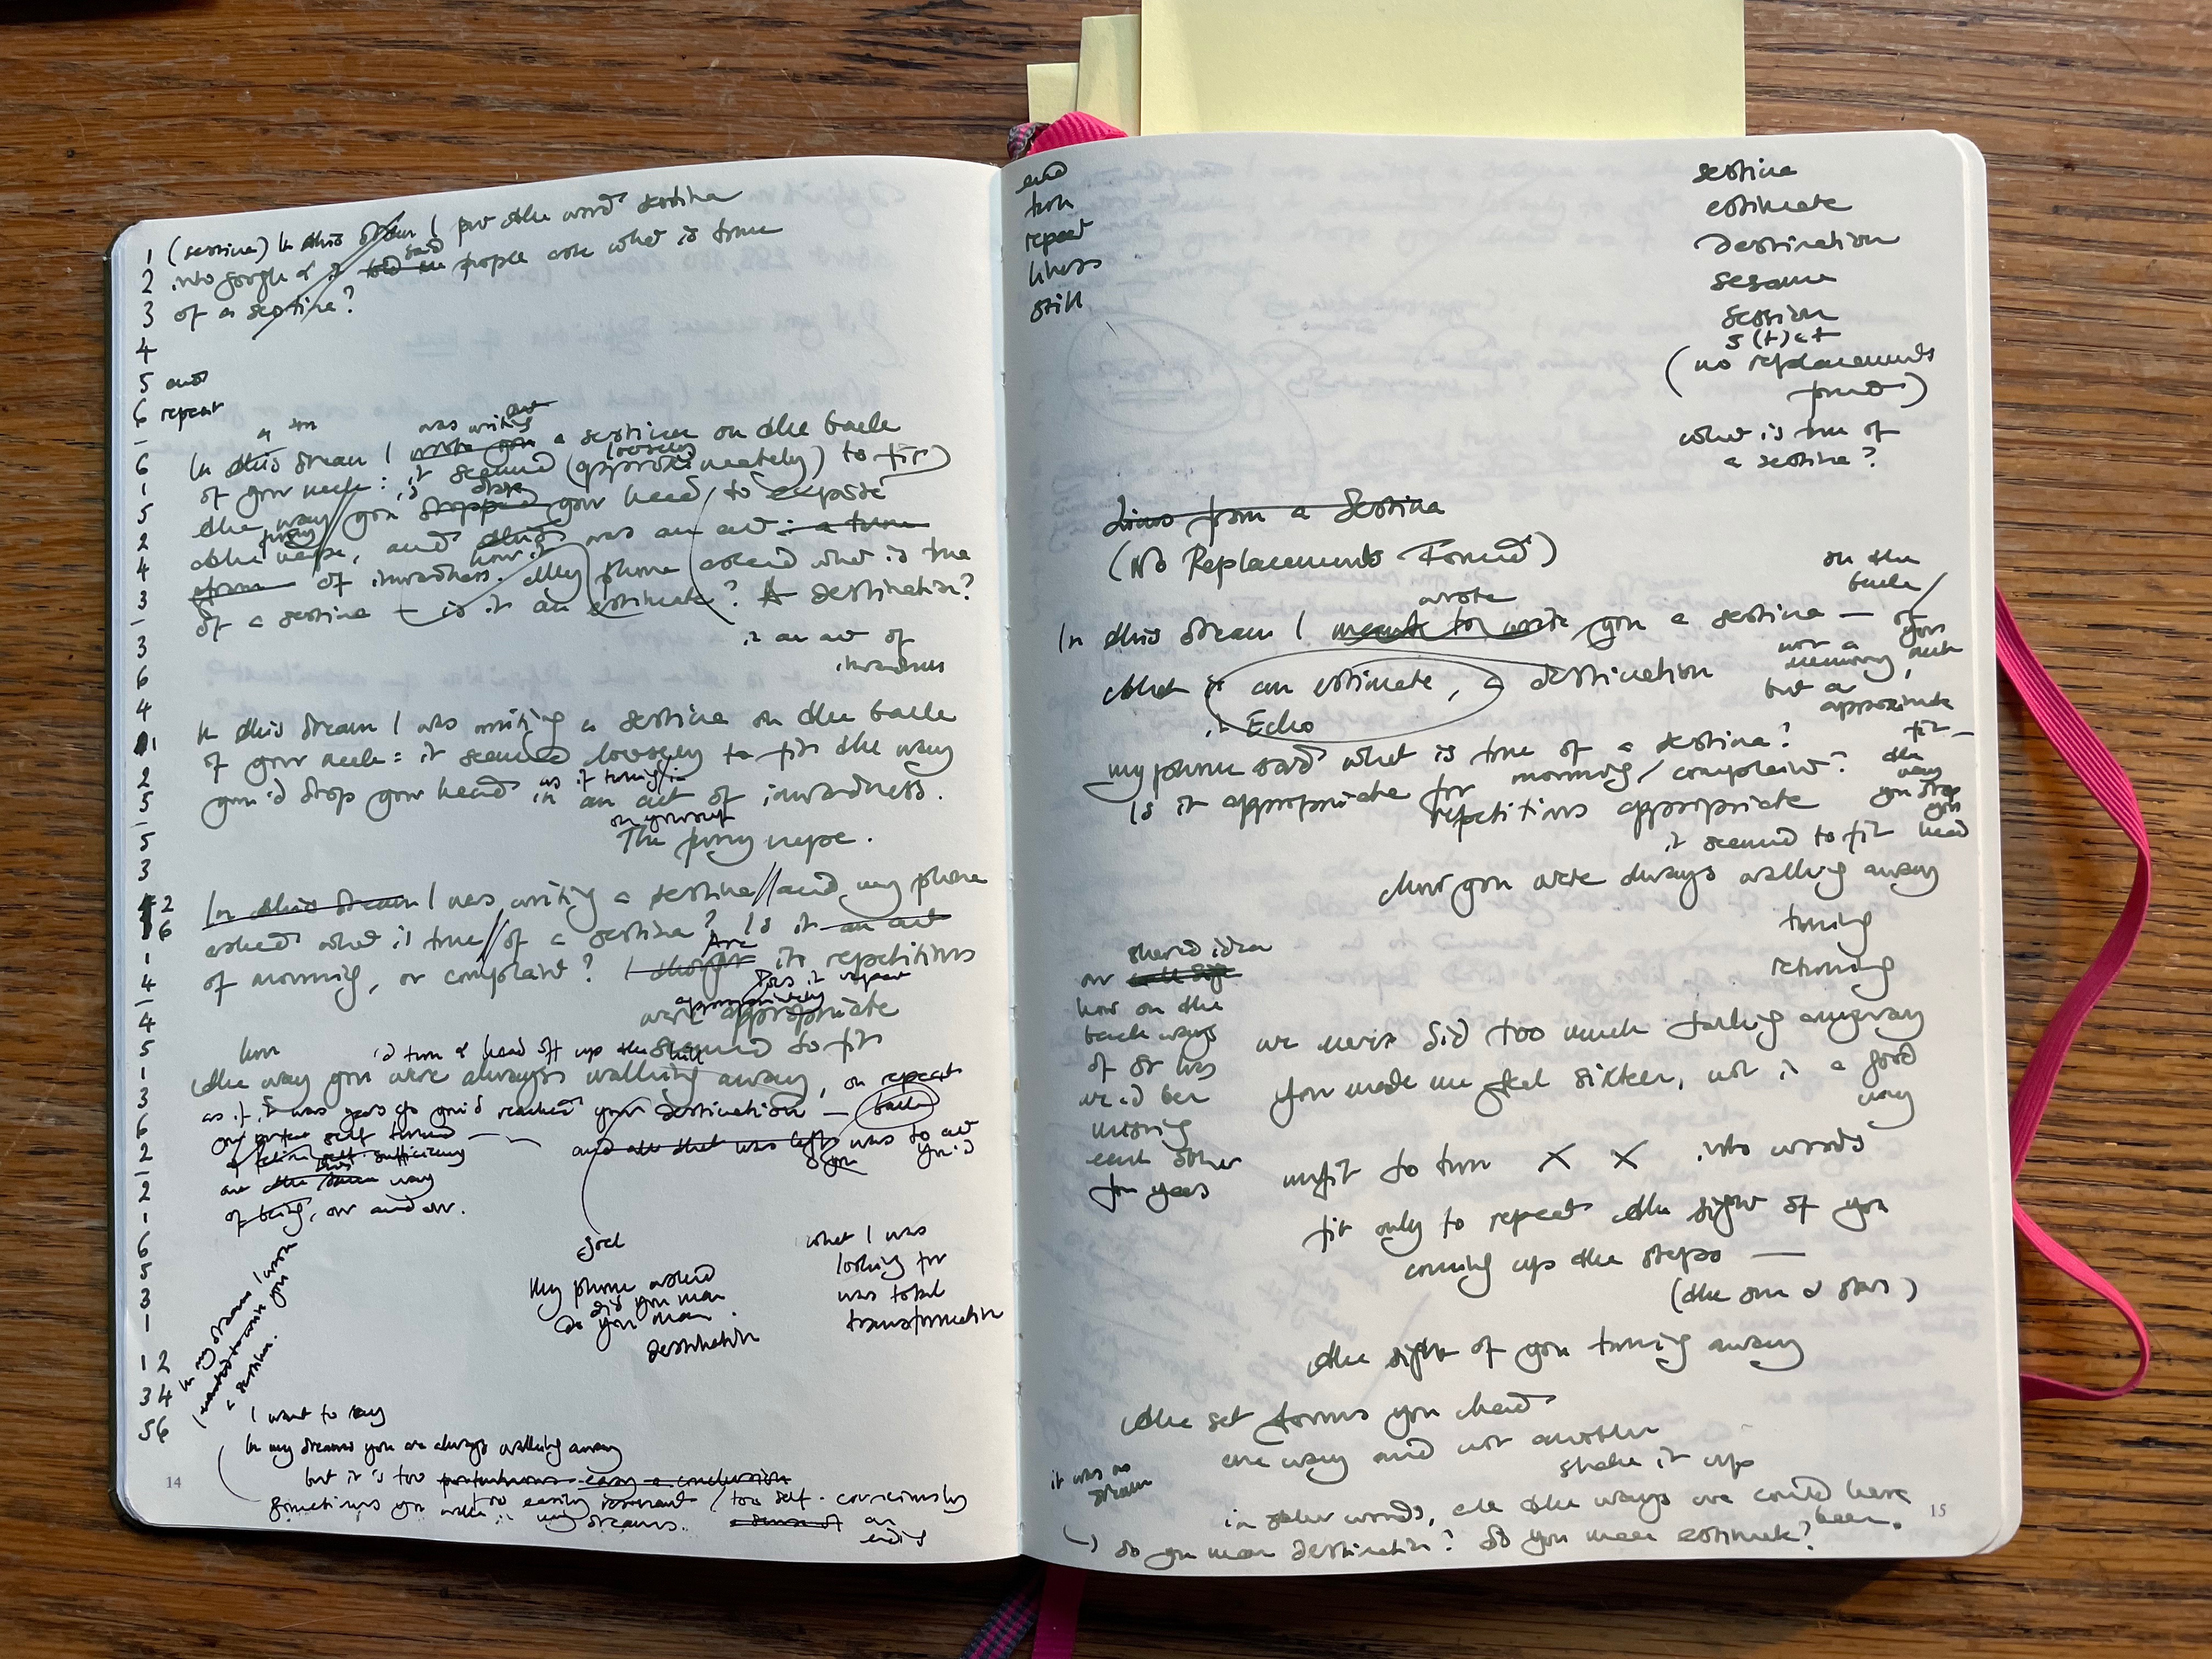 1 (sestina) In this dream I put the word sestina
2 into google & it told me said people ask what is true
3 of a sestina?
4
5 and
6 repeat
6
1
5
2
4
3
3
6
4
1
2
5
5
3
2
6
1
4
4
5
1
3
6
2
2
1
6
5
3
1
12
34
56
In this dream I was writing a sestina on the back
of your neck: it seemed loosely (approximately) to fit
the way you dropped your head, to expose
the nape, and this was an act: a turn
of inwardness. My phone asked what is true
of a sestina – is it an estimate? A destination?
it an act of
inwardness
In this dream I was writing a sestina on the back
of your neck: it seemed loosely to fit the way
you'd drop your head in an act of inwardness.
as if turning in
on yourself
The nape.
In this dream I was writing a sestina // and my phone
asked what is true // of a sestina? Is it an act
of mourning, or complaint? I thought Are its repetitions
Does it repeat
appropriately
were appropriate
seemed to fit
turn & head off up the hill
the way you were always walking away, on repeat
as if it was years ago you'd reached your destination — back
and all that was left was to act
way
of being, over and over.
goal
My phone asked
did you mean
do you mean
destination
what I was
looking for
was total
transformation
In my dreams
I wanted to write you
a sestina.
I want to say
In my dreams you are always walking away
but it is too portentous easy a conclusion
too easily / too self-consciously
Sometimes you walk in my dreams. a sense of an
ending
14
end
turn
repeat
still
sestina
estimate
destination
sesame
session
s(t)et
(no replacements
found)
what is true of
a sestina?
Lines from a Sestina
(No Replacements Found)
In this dream I meant to write wrote you a sestina —
on the
back
of
your
neck
that is an estimate, a destination
it Echo
not a
memory,
but a
approximate
fit —
the
way
you drop
your
head
my phone said what is true of a sestina?
Is it appropriate for mourning / complaint?
repetitions appropriate
it seemed to fit
how you were always walking away
turning
returning
shared idea
or
how on the
back ways
we'd been
missing
each other
for years
we never did too much talking anyway
You made me feel sixteen, not in a good
way
unfit to turn X X into words
fit only to repeat the sight of you
coming up the steps —
(the sun & stars)
the sight of you turning away
the set forms you had
one way and not another
shake it up
it was no
dream
in other words, all the ways we could have
been.
→ Do you mean destination? Do you mean estimate?
15